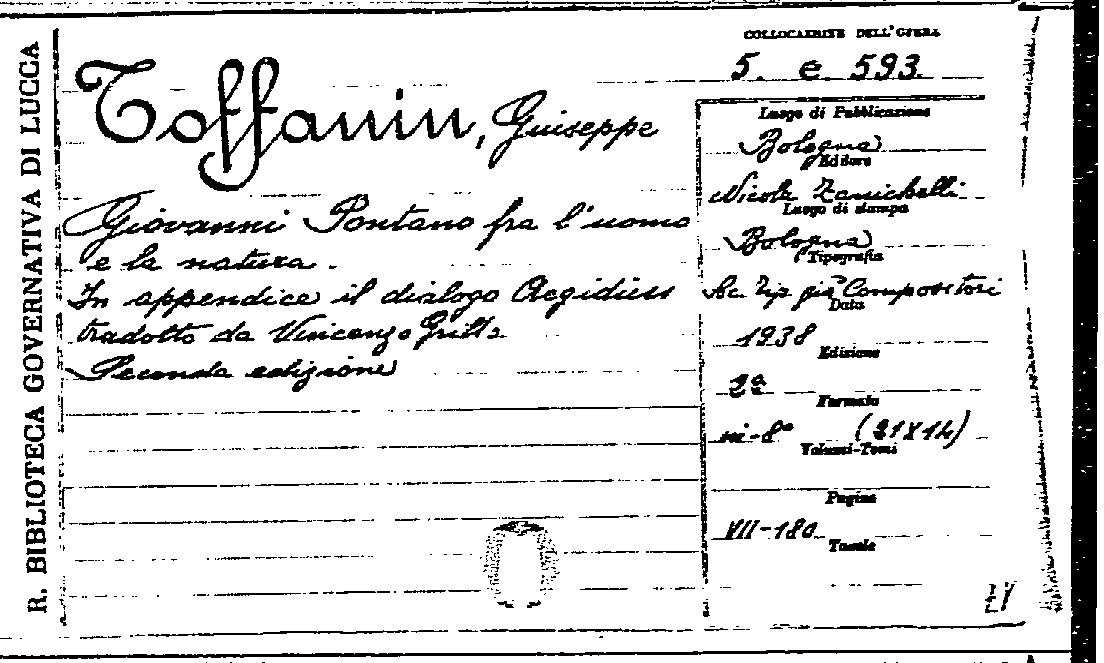 R. BIBLIOTECA GOVERNATIVA DI LUCCA
COLLOCAZIONE DELL'OPERA
5. e. 593.
Toffanin, Giuseppe
Giovanni Pontano fra l'uomo
e la natura.
In appendice il dialogo Aegidius
tradotto da Vincenzo Grillo
Seconda edizione
Luogo di Pubblicazione
Bologna
Editore
Nicola Zanichelli
Luogo di stampa
Bologna
Tipografia
Ac. Tip. già Compositori
Data
1938
Edizione
2a
Formato
in-8° (21X14)
Volumi-Tomi
Pagine
VII-180
Tavole